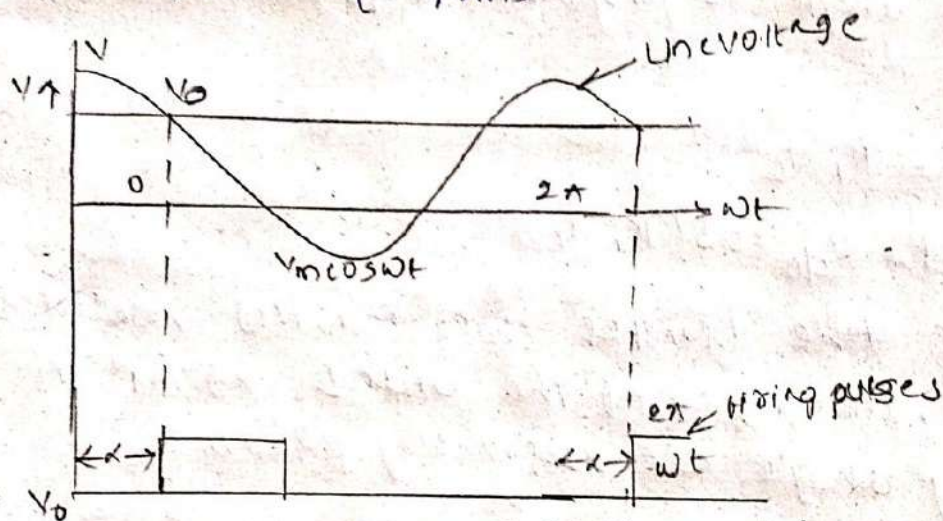 Line voltage
V
V↑
Vθ
0
2π
ωt
Vmcosωt
2π
firing pulses
←α→
←α→
ωt
V0